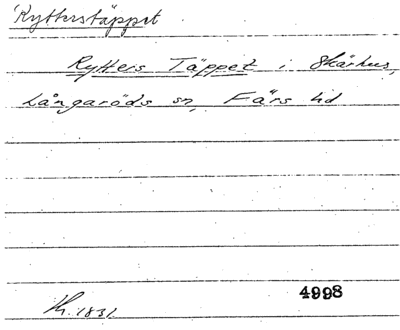 Rytterstäppet
Rytters Täppet i Skårhus,
Långaröds sn, Färs hd
4998
1831.